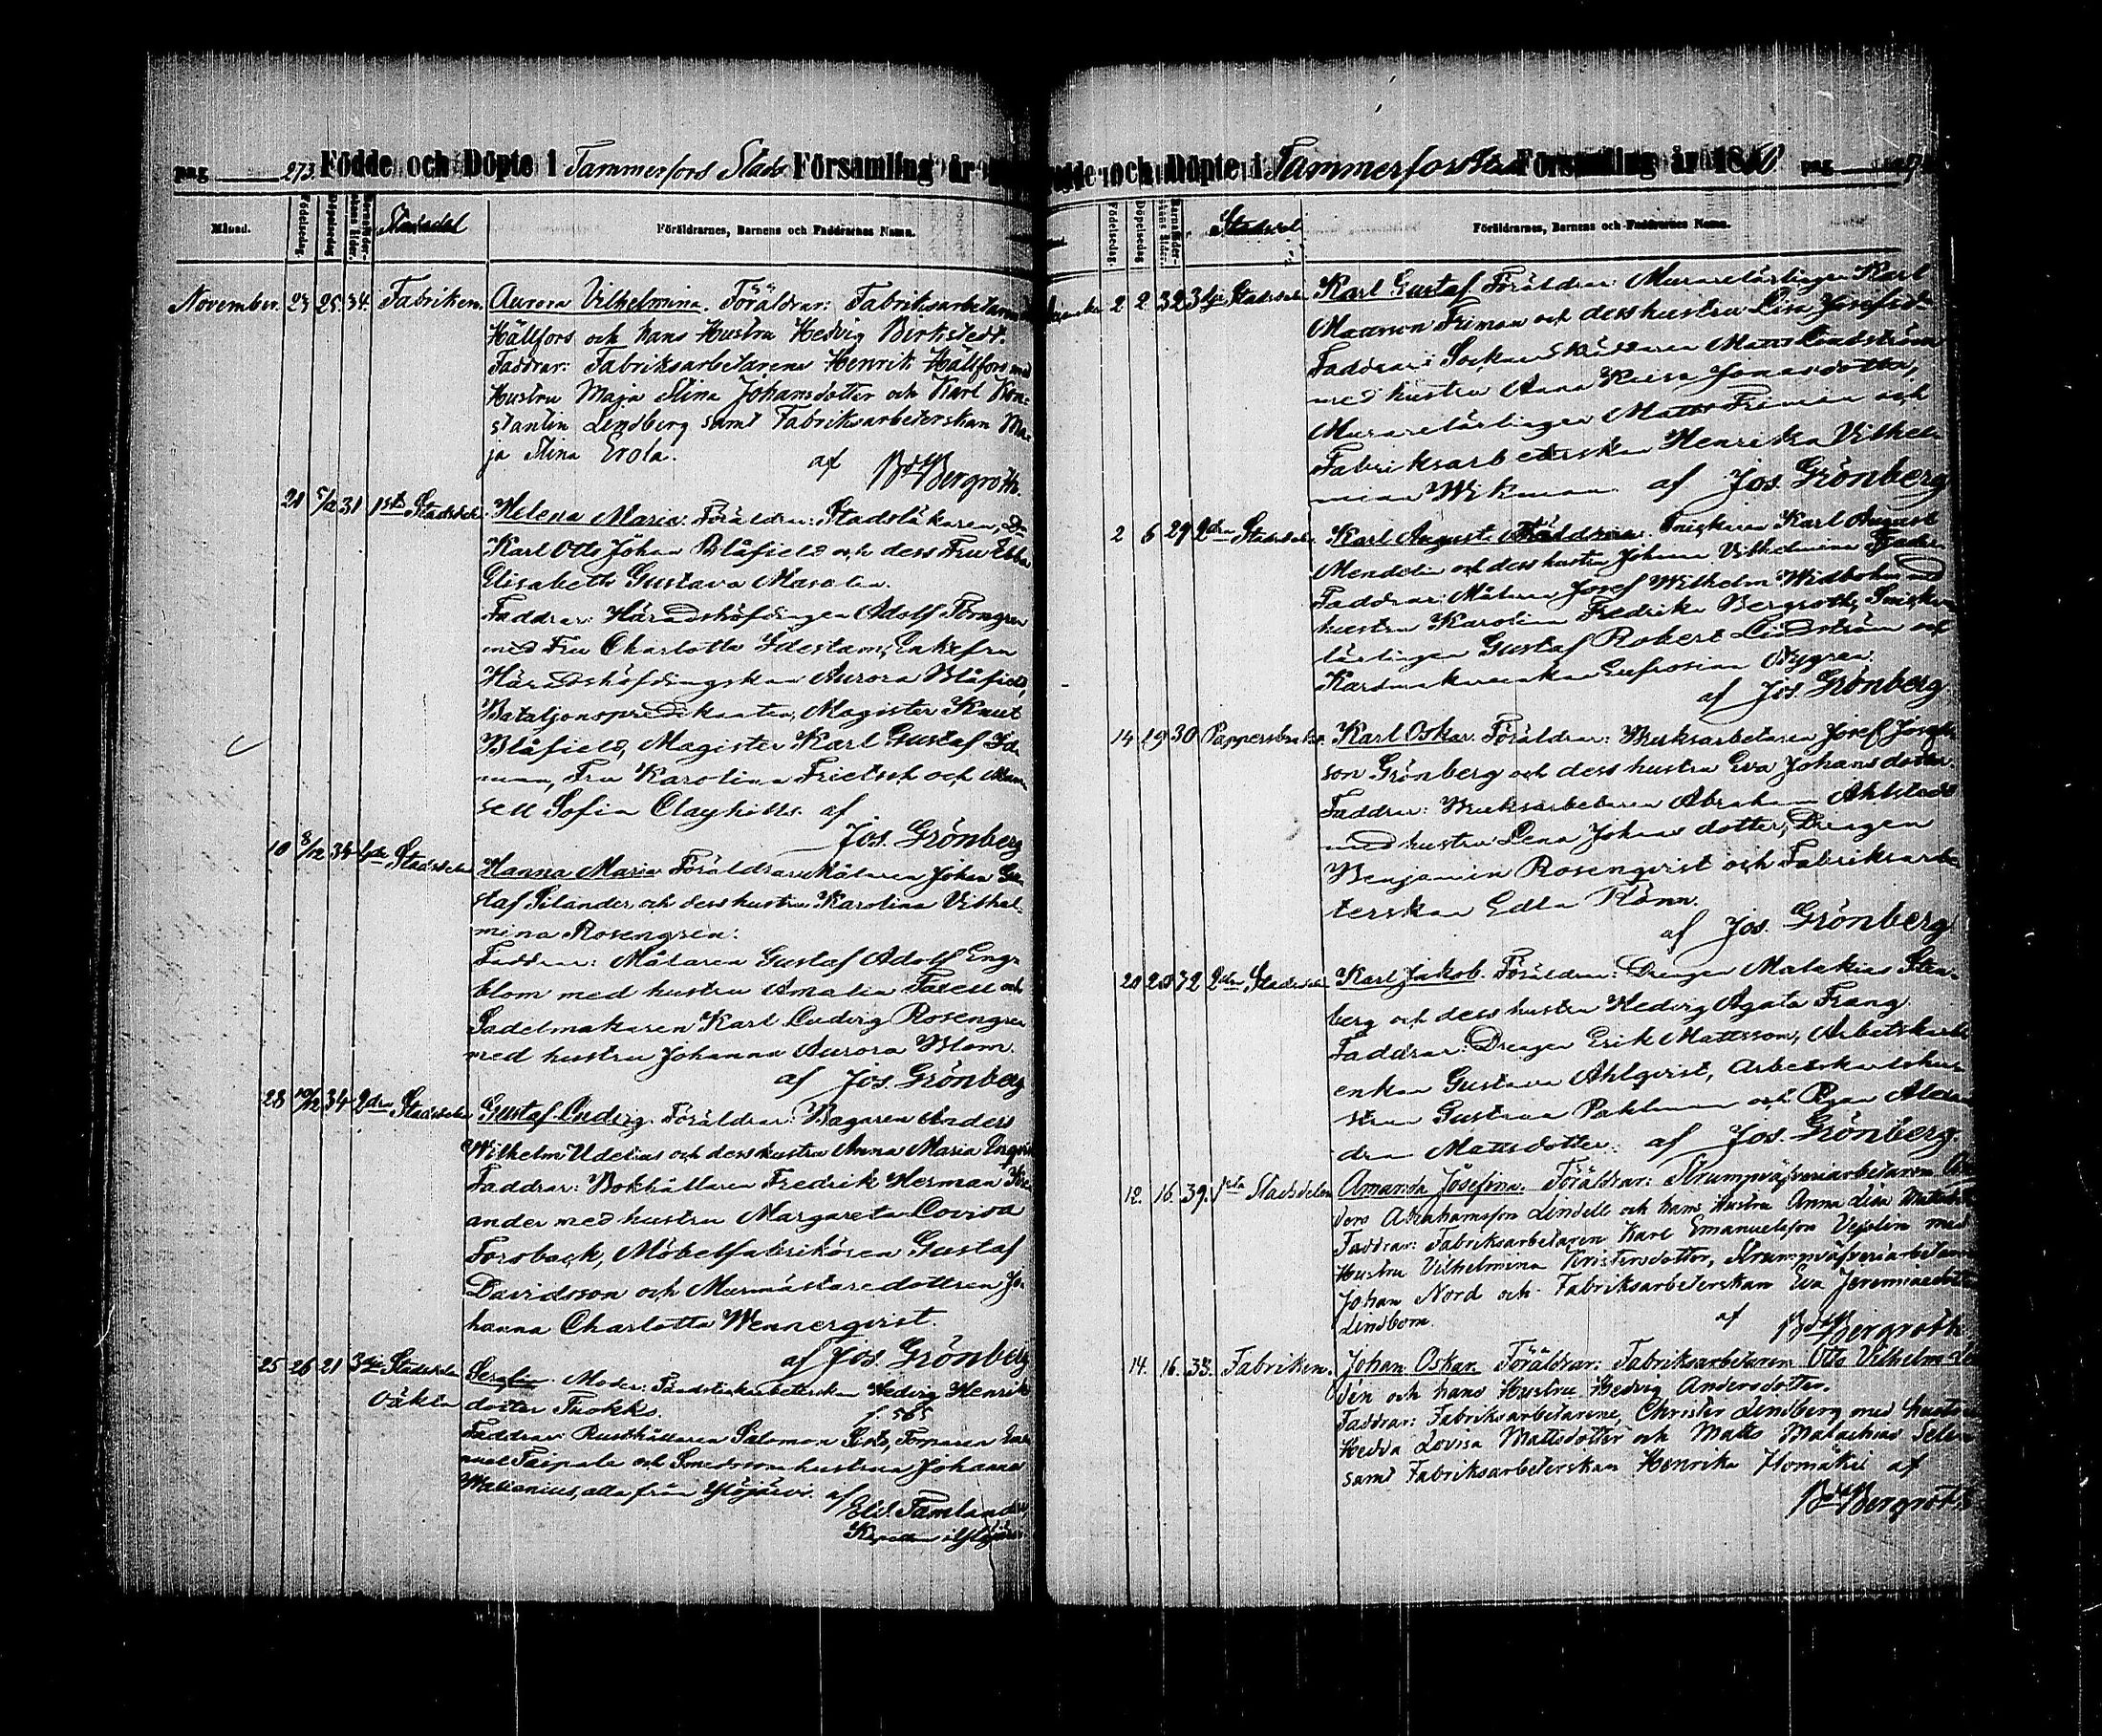 pag 273. Födde och Döpte i Tammerfors Stads Församling år
Månad. Födelsedag. Döpelsedag Barnaföderskans ålder. Stadsdel Föräldrarnes, Barnens och Faddrarnes Namn.
November. 23 25. 34. Fabriken. Aurora Vilhelmina. Föräldrar: Fabriksarbetaren
Hällfors och hans Hustru Hedvig Birkstedt.
Faddrar: Fabriksarbetarene Henrik Hällfors med
Hustru Maja Stina Johansdotter och Karl Kon-
stantin Lindberg samt Fabriksarbeterskan Ma-
ja Stina Erola. af Bergroth.
21 5/12 31 1sta Stadsdelen Helena Maria. Föräldrar: Stadsläkaren, Dr
Karl Otto Johan Blåfield och dess Fru Ebba
Elisabeth Gustava Masalin.
Faddrar: Häradshöfdingen Adolf Törngren
med Fru Charlotta Idestam, Enkefru
Häradshöfdingskan Aurora Blåfield,
Bataljonspredikanten, Magister Knut
Blåfield, Magister Karl Gustaf Id-
man, Fru Karolina Frietsch och Mam-
sell Sofia Clayhills. af
Jos. Grönberg
10 8/12 34 4de Stadsdelen Hanna Maria Föräldrar: Målaren Johan Gu-
staf Silander och dess hustru Karolina Vilhel-
mina Rosengren.
Faddrar: Målaren Gustaf Adolf Eng-
blom med hustru Amalia Taxell och
Sadelmakaren Karl Ludvig Rosengren
med hustru Johanna Aurora Blom.
af Jos. Grönberg
28 10/12 34 2dra Stadsdelen Gustaf Ludvig. Föräldrar: Bagaren Anders
Wilhelm Udelius och dess hustru Anna Maria
Faddrar: Bokhållaren Fredrik Herman
ander med hustru Margareta Lovisa
Forsback, Möbelfabrikören Gustaf
Davidsson och Murmästaredottren Jo-
hanna Charlotta Wennerqvist.
af Jos. Grönberg
25 26 21 3dje Stadsdelen Serafia. Moder: Hedvig Henriks-
Oäkta dotter Tuokko. f. 565
Faddrar: Rusthållaren Salomon Torparen
Taipale och hustru Johanna
Walienius, alla från Ylöjärvi. af
Eld. Tamlander,
Kapellan i Ylöjärvi.
Födde och Döpte i Tammerfors Stads Församling år 1860 pag
Födelsedag. Döpelsedag Barnaföderskans ålder. Stadsdel Föräldrarnes, Barnens och Faddrarnes Namn.
2 2 32 3dje Stadsdelen Karl Gustaf Föräldrar: Murarelärlingen Karl
Mattsson Friman och dess hustru Lisa Josefsd-
Faddrar: Sockenskräddaren Matts Lindström
med hustru Anna Kaisa Jonasdotter,
Murarelärlingen Matts Friman och
Fabriksarbeterskan Henrika Vilhel-
mina Wikman. af Jos. Grönberg
2 6 29 2dra Stadsdelen Karl August. Föräldrar: Snickaren Karl August
Mendelin och dess hustru Johanna Vilhelmina
Faddrar: Målaren Josef Wilhelm Widbohm med
hustru Karolina Fredrika Bergroth, Snickare
lärlingen Gustaf Robert Lindström och
Kardmakerskan Eufrosina Nygren.
af Jos. Grönberg
14 19 30 Pappersbruket. Karl Oskar. Föräldrar: Bruksarbetaren Josef Josefs-
son Grönberg och dess hustru Eva Johansdotter.
Faddrar: Bruksarbetaren Abraham Ahlstedt
med hustru Lena Johansdotter, Drengen
Benjamin Rosenqvist och Fabriksarbe-
terskan Edla Rönn.
af Jos. Grönberg
20 20 32 2dra Stadsdelen Karl Jakob. Föräldrar: Drengen Malakias Sten-
berg och dess hustru Hedvig Agata Frang.
Faddrar: Drengen Erik Mattsson, Arbetskarls-
enkan Gustava Ahlqvist, arbetskarlshus-
trun Gustava Pahlman och Pigan
Mattsdotter. af Jos. Grönberg.
12. 16. 39. 1sta Stadsdelen Amanda Josefina. Föräldrar: Strumpväfveriarbetaren An-
ders Abrahamsson Lindell och hans Hustru Anna Lisa Mattsdotter
Faddrar: Fabriksarbetaren Karl Emanuelsson Veselin med
Hustru Vilhelmina Kristersdotter, Strumpväfveriarbetaren
Johan Nord och Fabriksarbeterskan Eva Jeremiaedotter
Lindbom. af Bergroth.
14. 16. 33. Fabriken. Johan Oskar. Föräldrar: Fabriksarbetaren Otto Vilhelm
och hans Hustru Hedvig Andersdotter.
Faddrar: Fabriksarbetarene, Christer Lindberg med Hustru
Hedda Lovisa Mattsdotter och Matts Malachias
samt Fabriksarbeterskan Henrika Ylomäki af
Bergroth